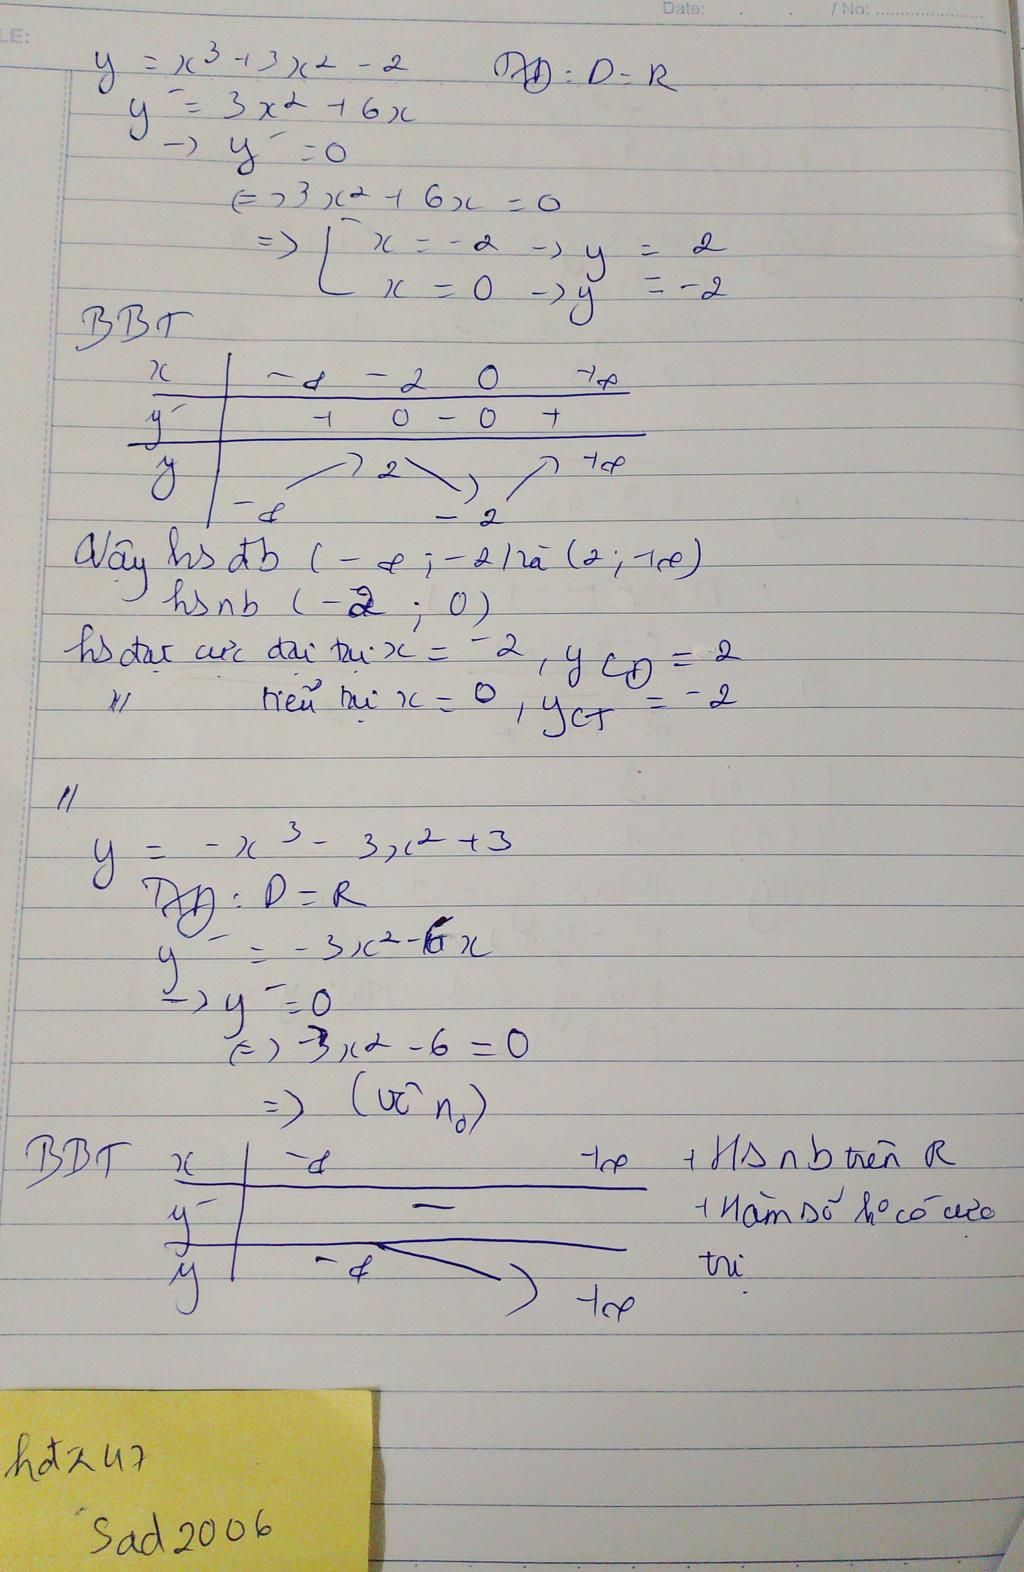 Date: . . / No:
LE:
y = x³ + 3x² - 2 TXĐ: D = R
y' = 3x² + 6x
→ y' = 0
⇔ 3x² + 6x = 0
⇒ [ x = -2 → y = 2
x = 0 → y = -2
BBT
x -∞ -2 0 +∞
y' + 0 - 0 +
y -∞ 2 -2 +∞
Vậy hs đb (-∞; -2) và (2; +∞)
hs nb (-2; 0)
hs đạt cực đại tại x = -2, yCĐ = 2
〃 tiểu tại x = 0, yCT = -2
//
y = -x³ - 3x² + 3
TXĐ: D = R
y' = -3x² - 6x
→ y' = 0
⇔ -3x² - 6 = 0
⇒ (vô n₀)
BBT x -∞ +∞ + HS nb trên R
y' - + Hàm số k° có cực
y -∞ +∞ trị
hdz47
Sad2006